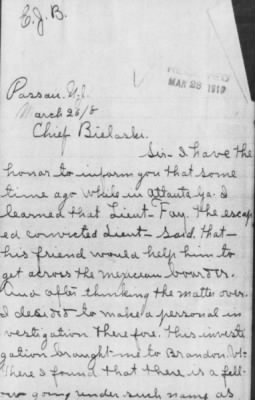 C.J.B.
MAR 28 1918
Passau. N.J.
March 26/8
Chief Bielaski.
Sir- I have the
honor to inform you that some
time ago while in Atlanta, Ga. I
learned that Lieut- Fay. The escap
ed convicted Lieut- said that-
his friend would help him to
get across the mexican bourder.
And after thinking the matter over.
I decided to make a personal in
vestigation therefore. This investi
gation braught me to Brandon, Vt-
There I found that there is a fell-
ow going under such name as